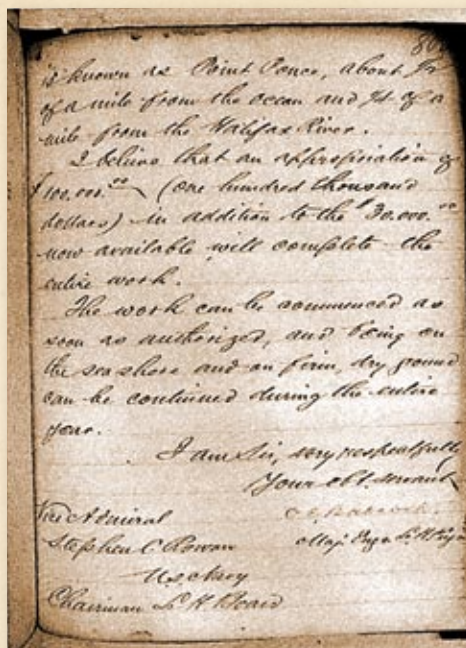 is known as Point Ponce, about
of a mile from the ocean and of a
mile from the Halifax River.
I believe that an appropriation of
$100.000.00 (one hundred thousand
dollars) in addition to the $30.000.00
now available will complete the
entire work.
The work can be commenced as
soon as authorized, and being on
the sea shore and on firm, dry ground
can be continued during the entire
year.
I am Sir, very respectfully
Your obt. servant
O.E. Babcock.
Vice Admiral
Maj. Engr L.H.
Stephen C Rowan
U.S. Navy
Chairman L. H. Board